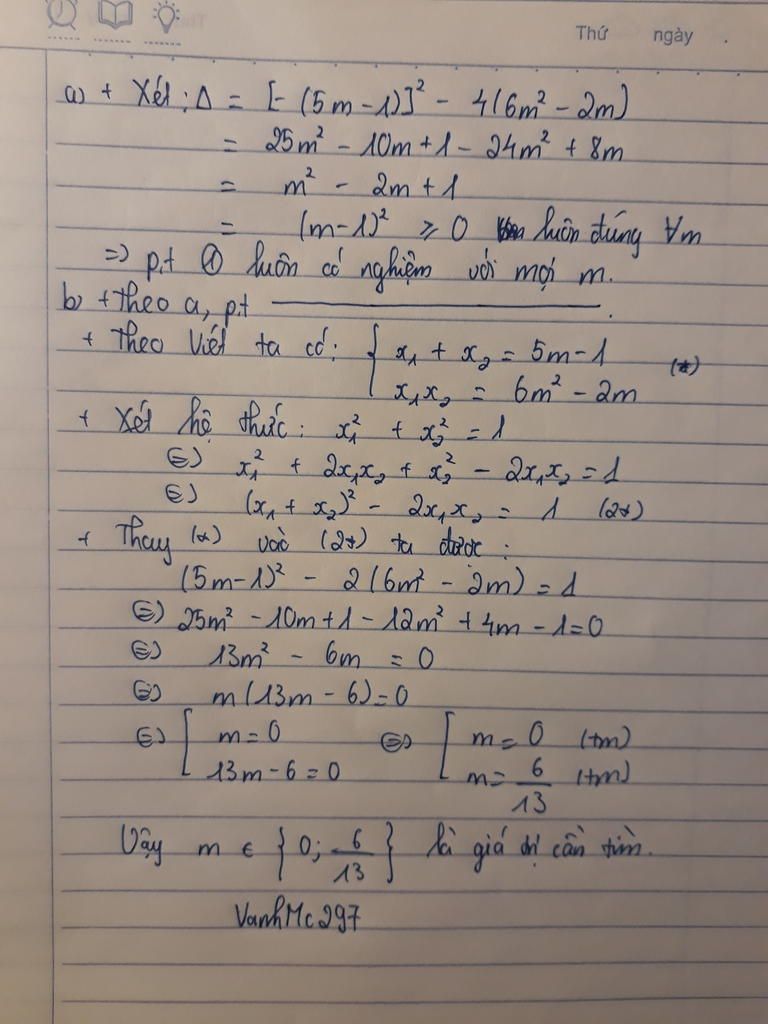 Thứ ngày .
a) + Xét: Δ = [-(5m-1)]² - 4(6m² - 2m)
= 25m² - 10m + 1 - 24m² + 8m
= m² - 2m + 1
= (m-1)² ⩾ 0 luôn đúng ∀m
=> p.t ① luôn có nghiệm với mọi m.
b) + theo a, p.t ———————.
+ Theo Viét ta có: { x₁ + x₂ = 5m-1
x₁x₂ = 6m² - 2m (*)
+ Xét hệ thức: x₁² + x₂² = 1
⇔ x₁² + 2x₁x₂ + x₂² - 2x₁x₂ = 1
⇔ (x₁ + x₂)² - 2x₁x₂ = 1 (2*)
+ Thay (*) vào (2*) ta được:
(5m-1)² - 2(6m² - 2m) = 1
⇔ 25m² - 10m + 1 - 12m² + 4m - 1 = 0
⇔ 13m² - 6m = 0
⇔ m(13m - 6) = 0
⇔ [ m = 0 ⇔ [ m = 0 (tm)
13m - 6 = 0 m = 6/13 (tm)
Vậy m ∈ {0; 6/13} là giá trị cần tìm.
VanhMc297